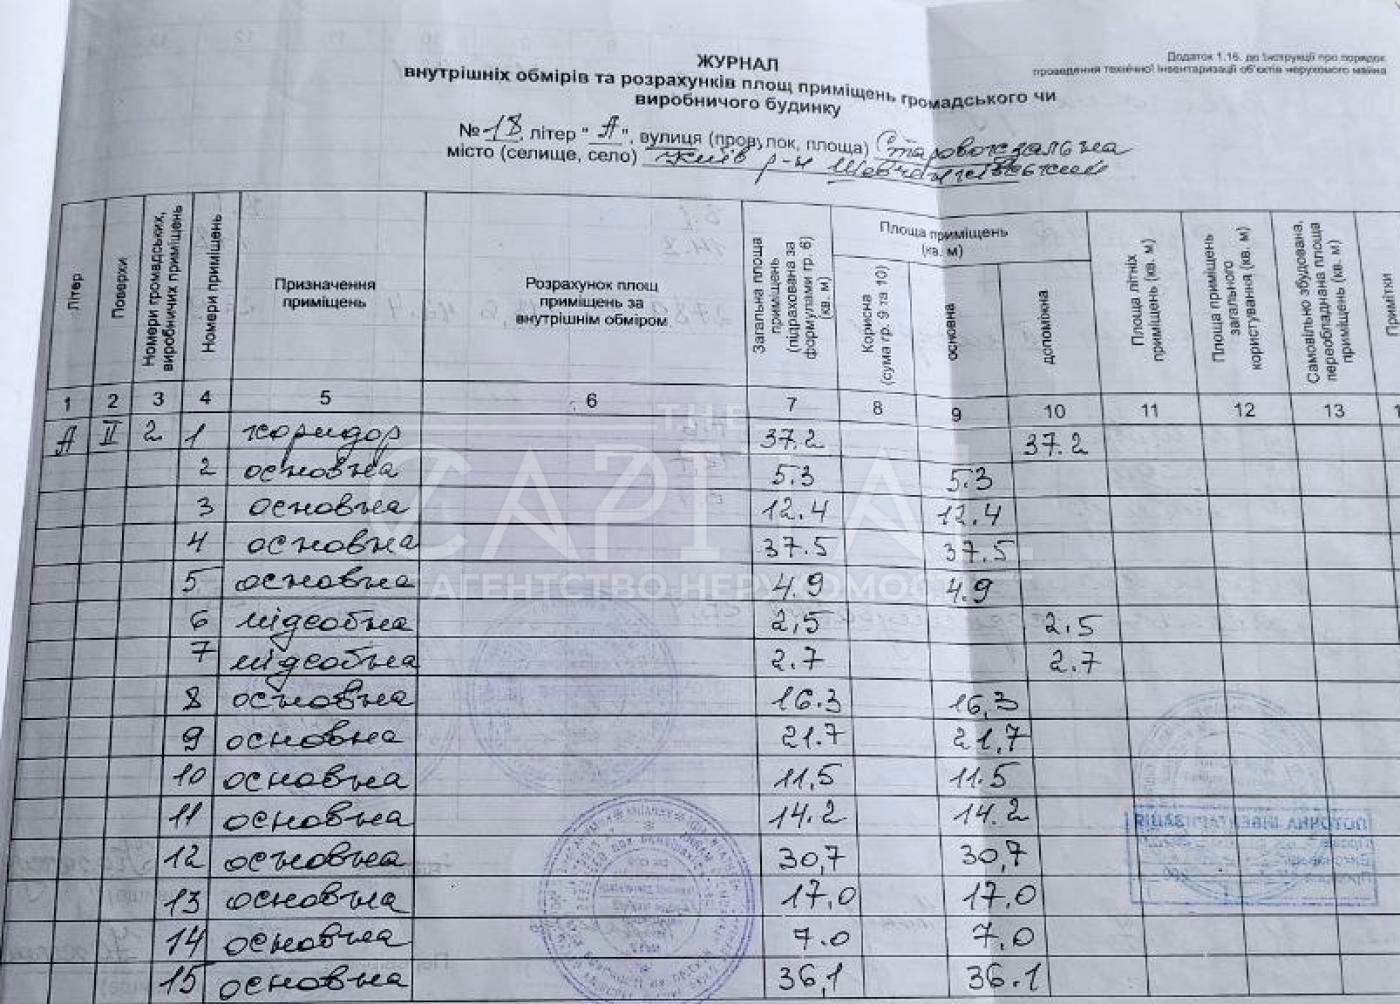 Додаток 1.16. до Інструкції про порядок
проведення технічної інвентаризації об'єктів нерухомого майна
ЖУРНАЛ
внутрішніх обмірів та розрахунків площ приміщень громадського чи
виробничого будинку
№ 18, літер "А", вулиця (провулок, площа) Старовокзальна
місто (селище, село) Київ р-н Шевченківський
Літер
Поверхи
Номери громадських, виробничих приміщень
Номери приміщень
Призначення приміщень
Розрахунок площ приміщень за внутрішнім обміром
Загальна площа приміщень (підрахована за формулами гр. 6) (кв. м)
Площа приміщень (кв. м)
Корисна (сума гр. 9 та 10)
основна
допоміжна
Площа літніх приміщень (кв. м)
Площа приміщень загального користування (кв. м)
Самовільно збудована, переобладнана площа приміщень (кв. м)
Примітки
1 2 3 4 5 6 7 8 9 10 11 12 13
А II 2 1 коридор 37.2 37.2
2 основна 5.3 5.3
3 основна 12.4 12.4
4 основна 37.5 37.5
5 основна 4.9 4.9
6 підсобна 2,5 2.5
7 підсобна 2.7 2.7
8 основна 16.3 16,3
9 основна 21.7 21,7
10 основна 11,5 11.5
11 основна 14.2 14.2
12 основна 30,7 30,7
13 основна 17,0 17,0
14 основна 7.0 7,0
15 основна 36,1 36.1
THE
CAPITAL
АГЕНТСТВО НЕРУХОМОСТІ
ПОТОЧНА ІНВЕНТАРИЗАЦІЯ